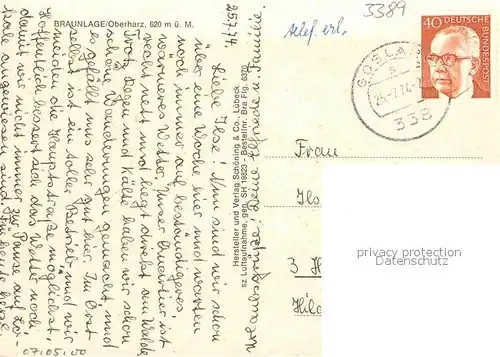 BRAUNLAGE/Oberharz, 620 m ü. M.
25.7.74
Liebe Ilse! Nun sind wir schon
über eine Woche hier und warten
noch immer auf beständigeres,
wärmeres Wetter. Unser Quartier ist
recht nett und liegt direkt am Walde.
Trotz Regen und Kälte haben wir schon
schöne Wanderungen gemacht und
es gefällt uns sehr gut hier. Im Ort
selbst ist ein toller Betrieb und wir
meiden die Hauptstraße möglichst.
Hoffentlich bessert sich das Wetter noch,
damit wir nicht immer zur Pause auf Lo-
kale angewiesen sind. Für heute herzl.
Urlaubsgrüße! Deine Elfriede u. Familie.
Hersteller und Verlag Schöning & Co., Lübeck
sz Luftaufnahme, gen. SH 19823 - Bestellnr. Bra Flg. 6370
telef. erl.
3389
40
DEUTSCHE
BUNDESPOST
GOSLAR
25.-7.74-7
338
Frau
Ils
3 H
Hild
privacy protection
Datenschutz
07:05:00